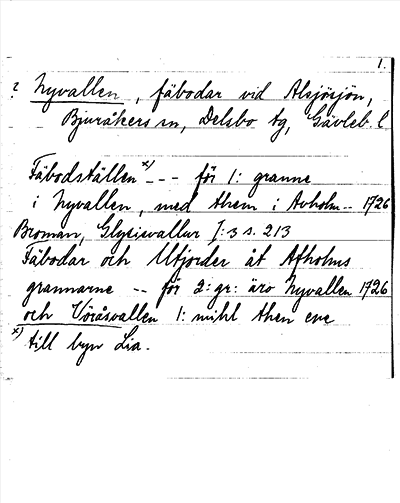 1.
? Nyvallen, fäbodar vid Alsjösjön,
Bjuråkers sn, Delsbo tg, Gävleb. l
Fäbodställen x) -- - för 1: granne
i Nyvallen, med them i Avholm-- 1726
Broman, Glysisvallur I:3 s. 213
Fäbodar och Utjorder åt Afholms
grannarne -- för 2: gr: äro Nyvallen 1726
och Vöråsvallen 1: mihl then ene
x) till byn Lia.